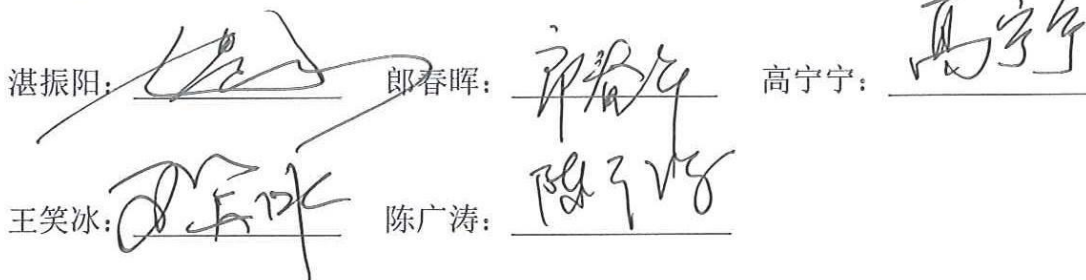 湛振阳： 郎春晖： 郎春晖 高宁宁： 高宁宁
王笑冰： 王笑冰 陈广涛： 陈广涛